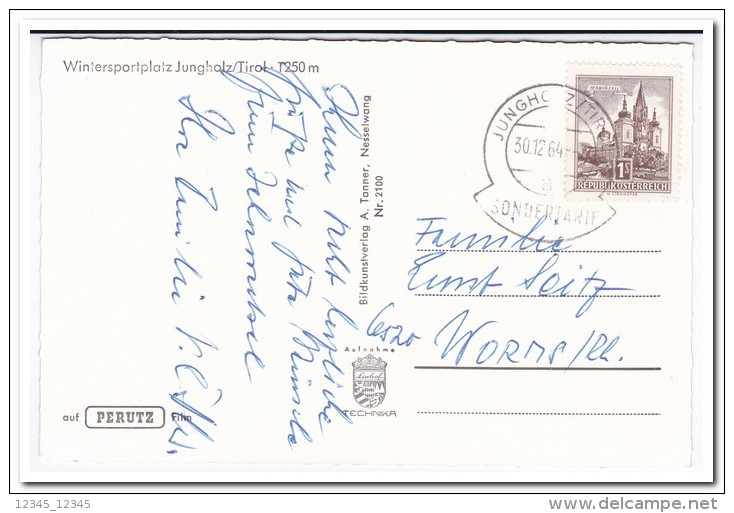 Wintersportplatz Jungholz/Tirol · 1250 m
Ihnen recht herzliche
Grüße und gute Wünsche
zum Jahreswechsel
Ihre Familie
Bildkunstverlag A. Tanner, Nesselwang
Nr. 2100
JUNGHOLZ (TIROL)
30.12.64
a
SONDERTARIF
MARIAZELL
1S
REPUBLIK ÖSTERREICH
Familie
Ernst Seitz
6520 WORMS/Rh.
Aufnahme
Linhof
TECHNIKA
auf PERUTZ Film
12345_12345
delcampe.net